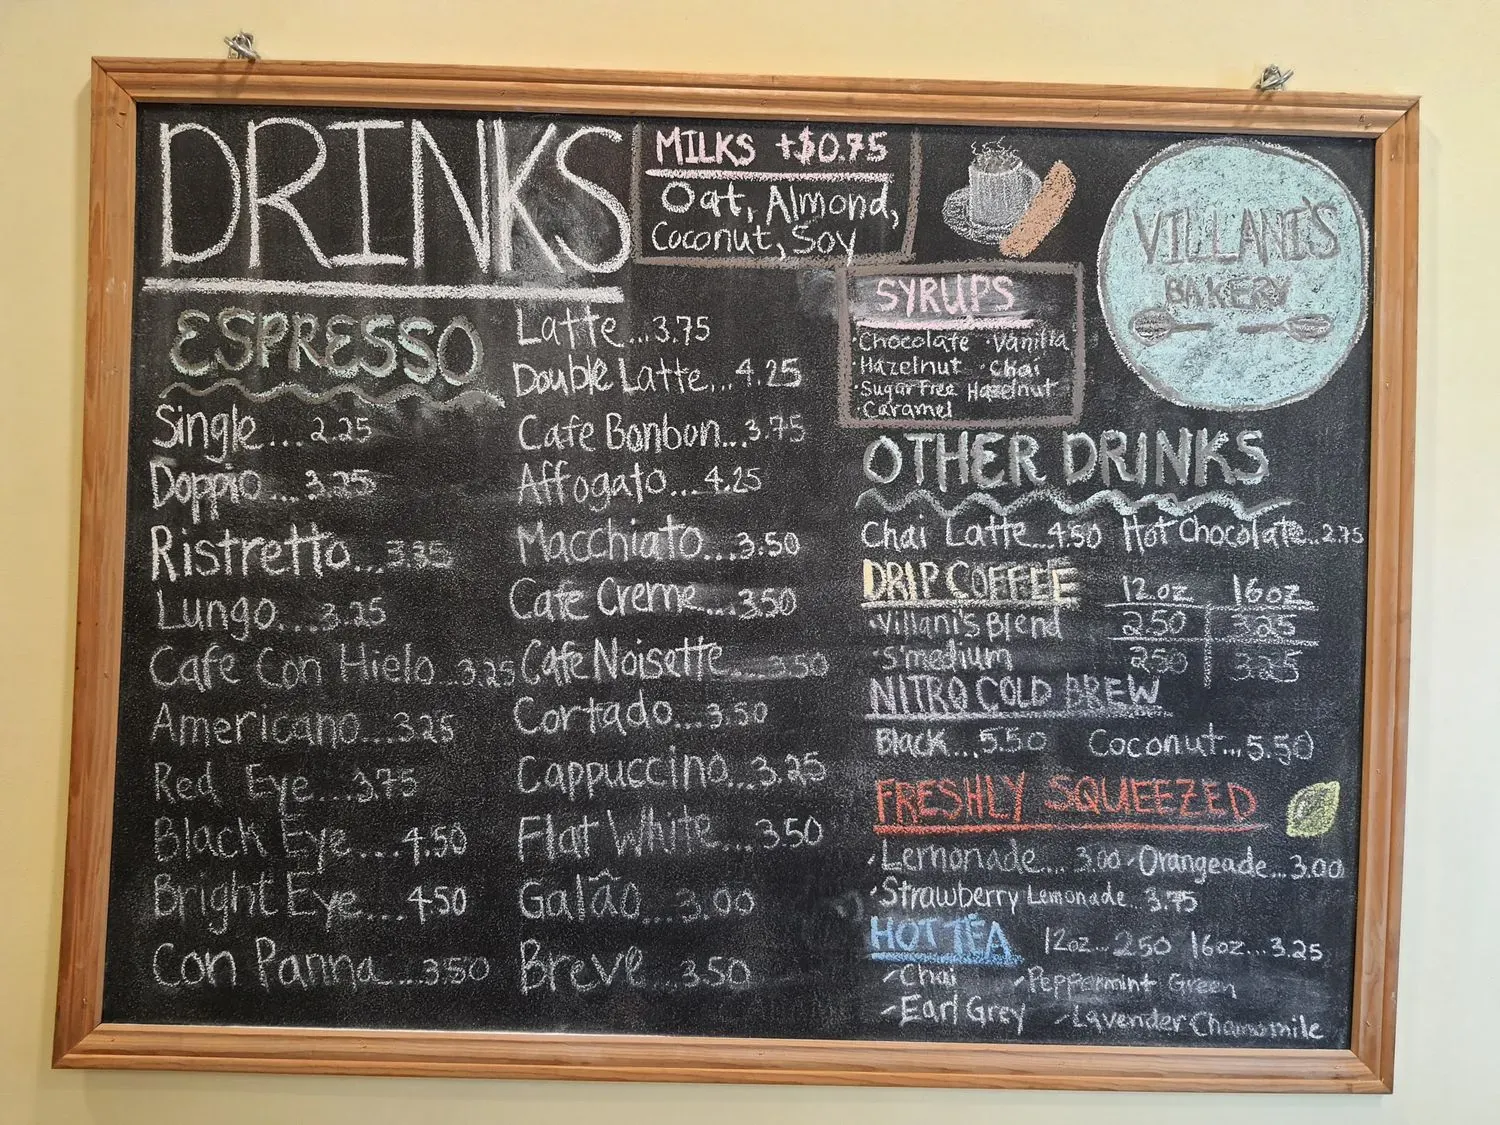 DRINKS
MILKS +$0.75
Oat, Almond,
Coconut, Soy
VILLANI'S
BAKERY
ESPRESSO
Single...2.25
Doppio...3.25
Ristretto...3.35
Lungo...3.25
Cafe Con Hielo...3.25
Americano...3.25
Red Eye...3.75
Black Eye...4.50
Bright Eye...4.50
Con Panna...3.50
Latte...3.75
Double Latte...4.25
Cafe Bonbon...3.75
Affogato...4.25
Macchiato...3.50
Cafe Creme...3.50
Cafe Noisette...3.50
Cortado...3.50
Cappuccino...3.25
Flat White...3.50
Galão...3.00
Breve...3.50
SYRUPS
·Chocolate ·Vanilla
·Hazelnut ·Chai
·Sugar Free Hazelnut
·Caramel
OTHER DRINKS
Chai Latte...4.50 Hot Chocolate...2.75
DRIP COFFEE 12oz 16oz
·Villani's Blend 2.50 3.25
·S'medium 2.50 3.25
NITRO COLD BREW
Black...5.50 Coconut...5.50
FRESHLY SQUEEZED
-Lemonade...3.00 -Orangeade...3.00
-Strawberry Lemonade...3.75
HOT TEA 12oz...2.50 16oz...3.25
-Chai -Peppermint Green
-Earl Grey -Lavender Chamomile